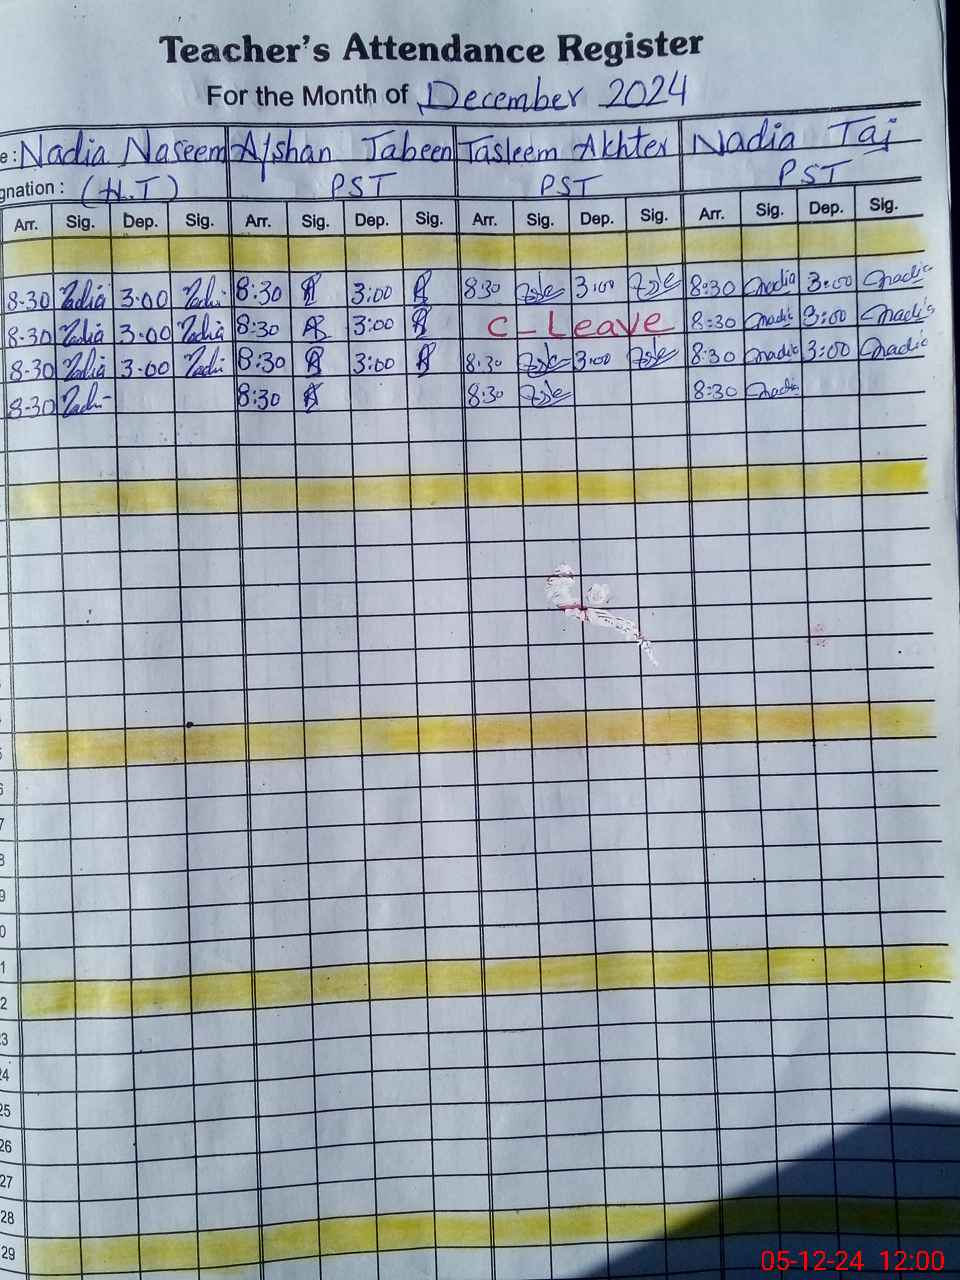 Teacher's Attendance Register
For the Month of December 2024
e: Nadia Naseem Afshan Jabeen Tasleem Akhter Nadia Taj
gnation: (H.T) PST PST PST
Arr. Sig. Dep. Sig. Arr. Sig. Dep. Sig. Arr. Sig. Dep. Sig. Arr. Sig. Dep. Sig.
8-30 Nadia 3:00 Nadi 8:30 3:00 8:30 3:00 8:30 Nadia 3:00 Nadia
8-30 Nadia 3:00 Nadia 8:30 3:00 C-Leave 8:30 Nadia 3:00 Nadia
8-30 Nadia 3:00 Nadi 8:30 3:00 8:30 3:00 8:30 Nadia 3:00 Nadia
8-30 Nadi 8:30 8:30 8:30 Nadi
5
6
7
8
9
0
1
2
23
24
25
26
27
28
29
05-12-24 12:00